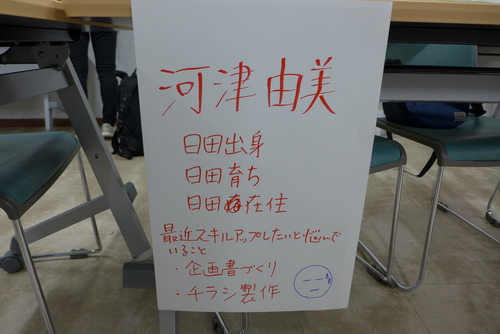 河津由美
日田出身
日田育ち
日田在住
最近スキルアップしたいと悩んで
いること
・企画書づくり
・チラシ製作